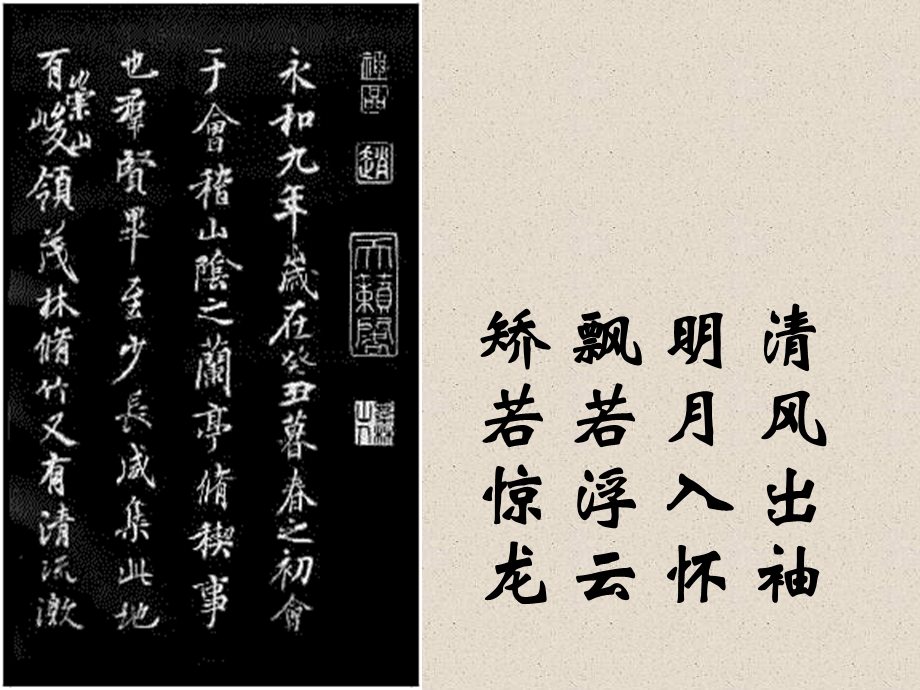 神品
趙
天籟閣
永和九年歲在癸丑暮春之初會
于會稽山陰之蘭亭脩稧事
也羣賢畢至少長咸集此地
有崇山峻領茂林脩竹又有清流激
清风出袖
明月入怀
飘若浮云
矫若惊龙